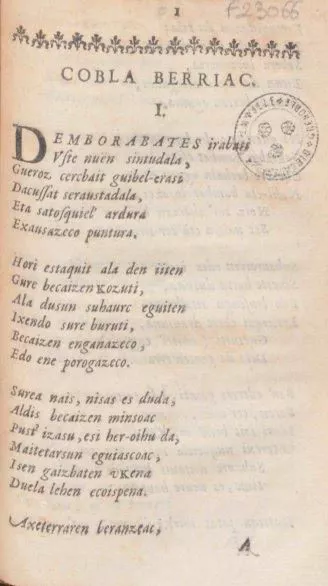 1
F23066
COBLA BERRIAC.
I.
DEMBORABATES irabasi
Vste nuen sintudala,
Gueroz cerchait guibel-erasi
Dacussat seraustadala,
Eta satosquiel' ardura
Exausazeco puntura.
Hori estaquit ala den iiten
Gure becaizen Kozuti,
Ala dusun suhaurc eguiten
Ixendo sure buruti,
Becaizen enganazeco,
Edo ene porogazeco.
Surea nais, nisas es duda,
Aldis becaizen minsoac
Pust' izasu, esi her-oihu da,
Maitetarsun eguiascoac,
Isen gaizbaten vKena
Duela lehen ecoispena.
Axeterraren beranzeac,
A